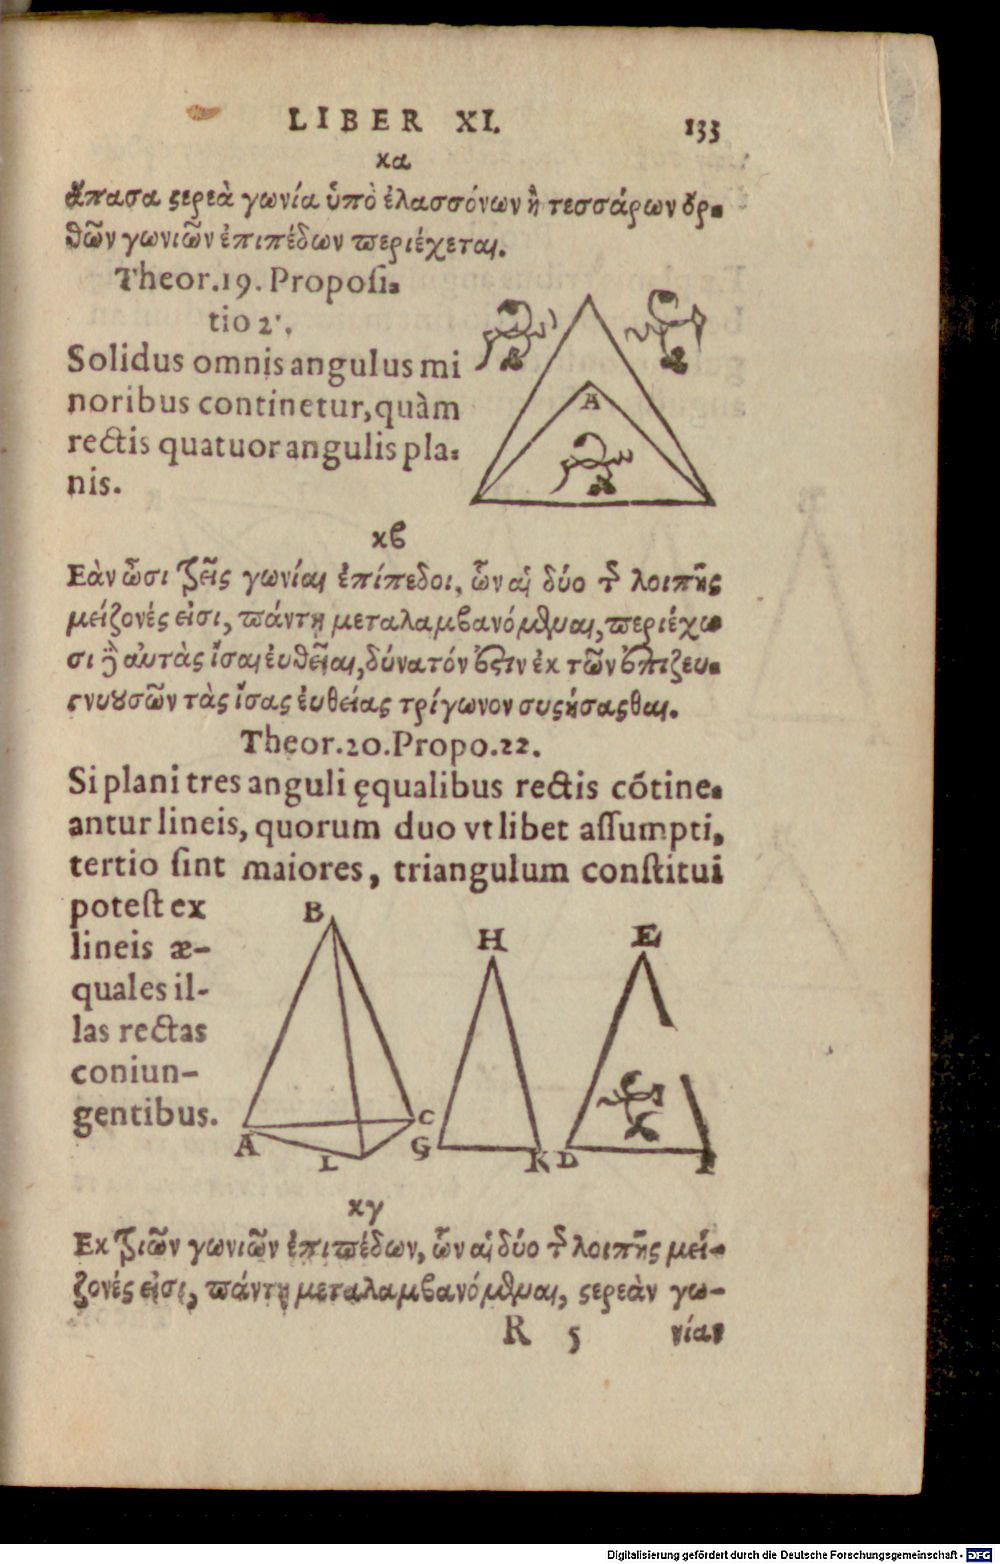 LIBER XI. 133
κα
ἅπασα ϛερεὰ γωνία ὑπὸ ἐλασσόνων ἢ τεσσάρων ὀρ-
θῶν γωνιῶν ἐπιπέδων περιέχεται.
Theor.19. Proposi-
tio 2'.
Solidus omnis angulus mi
noribus continetur, quàm
rectis quatuor angulis pla-
nis.
A
κβ
Εὰν ὦσι τρεῖς γωνίαι ἐπίπεδοι, ὧν αἱ δύο τῆς λοιπῆς
μείζονές εἰσι, πάντῃ μεταλαμβανόμεναι, περιέχω
σι δὲ αὐτὰς ἴσαι εὐθεῖαι, δύνατόν ἐϛιν ἐκ τῶν ἐπιζευ-
γνυουσῶν τὰς ἴσας εὐθείας τρίγωνον συϛήσαϛθαι.
Theor.20. Propo.22.
Si plani tres anguli ęqualibus rectis cōtine-
antur lineis, quorum duo vt libet assumpti,
tertio sint maiores, triangulum constitui
potest ex
lineis æ-
quales il-
las rectas
coniun-
gentibus.
B H E
A L C G K D F
κγ
Εκ τριῶν γωνιῶν ἐπιπέδων, ὧν αἱ δύο τῆς λοιπῆς μεί-
ζονές εἰσι, πάντῃ μεταλαμβανόμεναι, ϛερεὰν γω-
R 5 νίαν
Digitalisierung gefördert durch die Deutsche Forschungsgemeinschaft - DFG